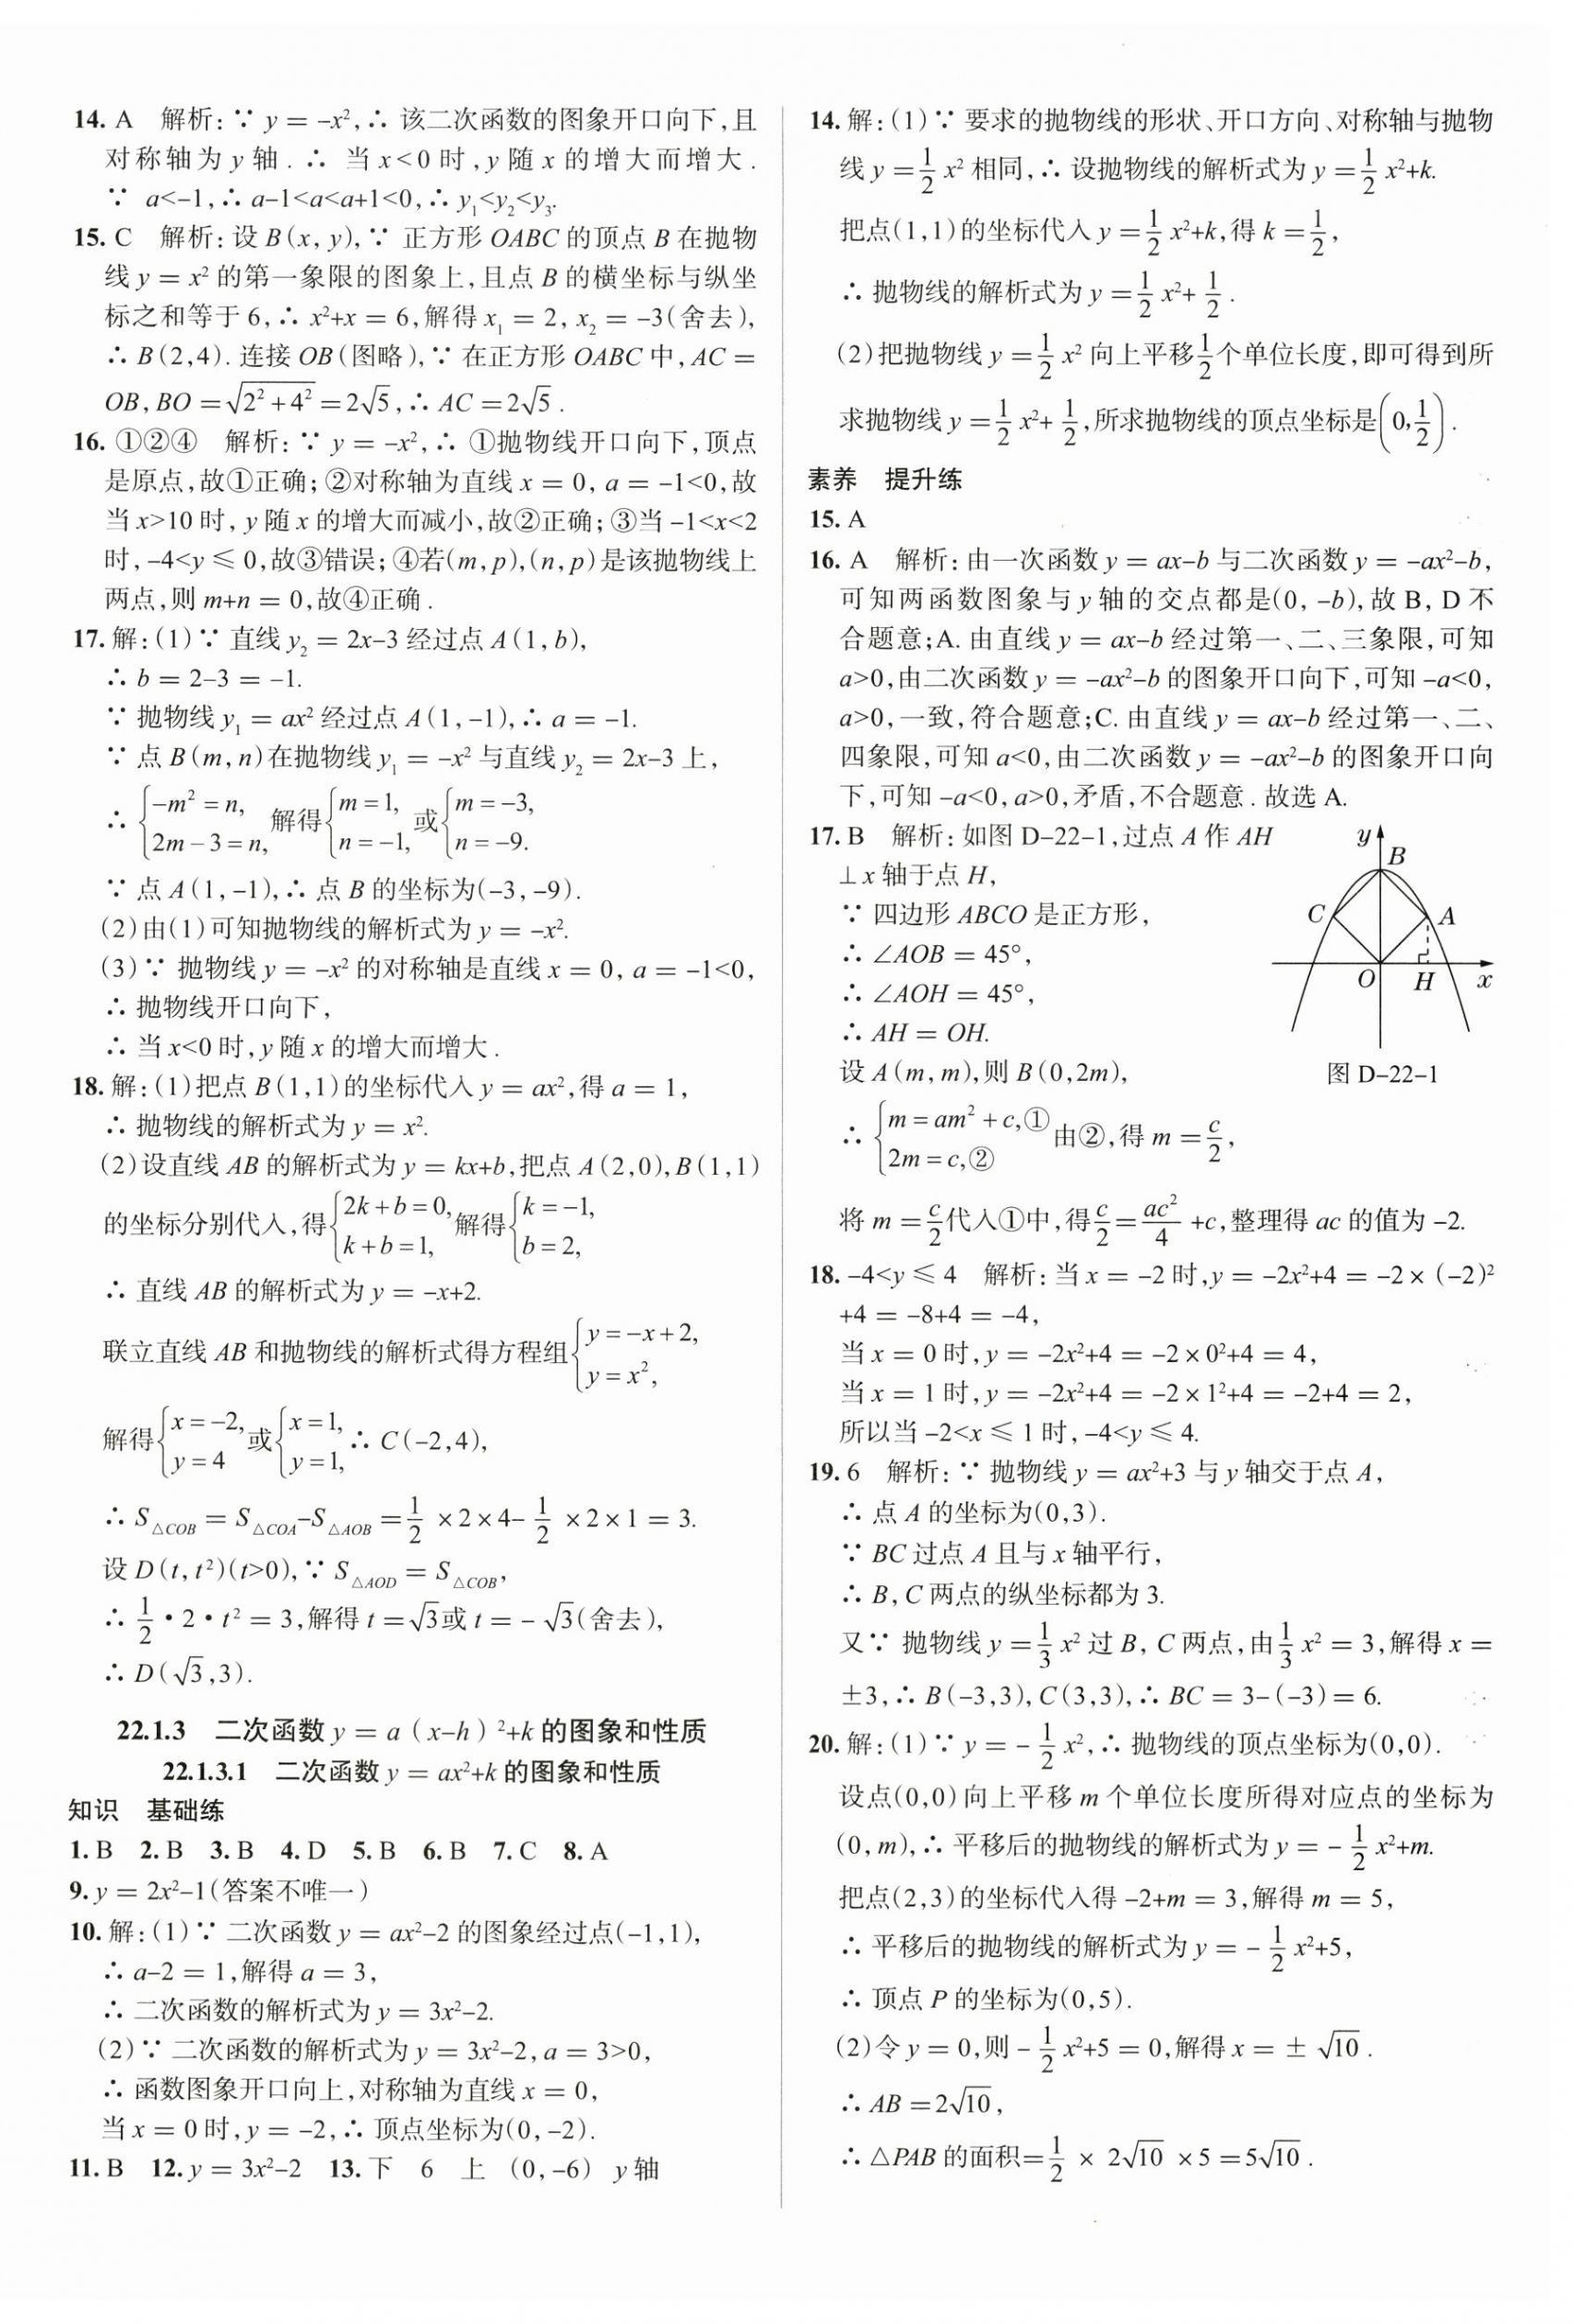 14. A　解析:∵ y = -x²,∴ 该二次函数的图象开口向下,且
对称轴为 y 轴 . ∴ 当 x<0 时,y 随 x 的增大而增大 .
∵ a<-1,∴ a-1<a<a+1<0,∴ y₁<y₂<y₃.
15. C　解析:设 B(x, y),∵ 正方形 OABC 的顶点 B 在抛物
线 y = x² 的第一象限的图象上,且点 B 的横坐标与纵坐
标之和等于 6,∴ x²+x = 6,解得 x₁ = 2, x₂ = -3(舍去),
∴ B(2,4). 连接 OB(图略),∵ 在正方形 OABC 中,AC =
OB,BO =√(2²+4²) =2√5,∴ AC =2√5 .
16. ①②④　解析:∵ y = -x²,∴ ①抛物线开口向下,顶点
是原点,故①正确;②对称轴为直线 x = 0, a = -1<0,故
当 x>10 时, y 随 x 的增大而减小,故②正确;③当 -1<x<2
时,-4<y ≤ 0,故③错误;④若(m,p),(n,p)是该抛物线上
两点,则 m+n = 0,故④正确 .
17. 解:(1)∵ 直线 y₂ = 2x-3 经过点 A(1,b),
∴ b = 2-3 = -1.
∵ 抛物线 y₁ = ax² 经过点 A(1,-1),∴ a = -1.
∵ 点 B(m,n)在抛物线 y₁ = -x² 与直线 y₂ = 2x-3 上,
∴ {-m²=n, 2m-3=n, 解得{m=1, n=-1, 或{m=-3, n=-9.
∵ 点 A(1,-1),∴ 点 B 的坐标为(-3,-9).
(2)由(1)可知抛物线的解析式为 y = -x².
(3)∵ 抛物线 y = -x² 的对称轴是直线 x = 0, a = -1<0,
∴ 抛物线开口向下,
∴ 当 x<0 时,y 随 x 的增大而增大 .
18. 解:(1)把点 B(1,1)的坐标代入 y = ax²,得 a = 1,
∴ 抛物线的解析式为 y = x².
(2)设直线 AB 的解析式为 y = kx+b,把点 A(2,0),B(1,1)
的坐标分别代入,得{2k+b=0, k+b=1, 解得{k=-1, b=2,
∴ 直线 AB 的解析式为 y = -x+2.
联立直线 AB 和抛物线的解析式得方程组{y=-x+2, y=x²,
解得{x=-2, y=4 或{x=1, y=1, ∴ C(-2,4),
∴ S△COB = S△COA-S△AOB =1/2 ×2×4- 1/2 ×2×1 = 3.
设 D(t,t²)(t>0),∵ S△AOD = S△COB,
∴ 1/2 • 2 • t² = 3,解得 t =√3或 t = - √3(舍去),
∴ D(√3,3).
22.1.3　二次函数 y = a(x-h)²+k 的图象和性质
22.1.3.1　二次函数 y = ax²+k 的图象和性质
知识　基础练
1. B　2. B　3. B　4. D　5. B　6. B　7. C　8. A
9. y = 2x²-1(答案不唯一)
10. 解:(1)∵ 二次函数 y = ax²-2 的图象经过点(-1,1),
∴ a-2 = 1,解得 a = 3,
∴ 二次函数的解析式为 y = 3x²-2.
(2)∵ 二次函数的解析式为 y = 3x²-2,a = 3>0,
∴ 函数图象开口向上,对称轴为直线 x = 0,
当 x = 0 时,y = -2,∴ 顶点坐标为(0,-2).
11. B　12. y = 3x²-2　13. 下　6　上　(0,-6)　y 轴
14. 解:(1)∵ 要求的抛物线的形状、开口方向、对称轴与抛物
线 y =1/2 x² 相同,∴ 设抛物线的解析式为 y =1/2 x²+k.
把点(1,1)的坐标代入 y =1/2 x²+k,得 k =1/2,
∴ 抛物线的解析式为 y =1/2 x²+ 1/2 .
(2)把抛物线 y =1/2 x² 向上平移1/2个单位长度,即可得到所
求抛物线 y =1/2 x²+ 1/2,所求抛物线的顶点坐标是(0,1/2) .
素养　提升练
15. A
16. A　解析:由一次函数 y = ax-b 与二次函数 y = -ax²-b,
可知两函数图象与 y 轴的交点都是(0, -b),故 B, D 不
合题意;A. 由直线 y = ax-b 经过第一、二、三象限,可知
a>0,由二次函数 y = -ax²-b 的图象开口向下,可知 -a<0,
a>0,一致,符合题意;C. 由直线 y = ax-b 经过第一、二、
四象限,可知 a<0,由二次函数 y = -ax²-b 的图象开口向
下,可知 -a<0,a>0,矛盾,不合题意 . 故选 A.
17. B　解析:如图 D-22-1,过点 A 作 AH
⊥x 轴于点 H,
∵ 四边形 ABCO 是正方形,
∴ ∠AOB = 45°,
∴ ∠AOH = 45°,
∴ AH = OH.
设 A(m,m),则 B(0,2m),
y
B
C
A
O
H
x
图 D-22-1
∴ {m=am²+c,① 2m=c,② 由②,得 m =c/2,
将 m =c/2代入①中,得c/2=ac²/4 +c,整理得 ac 的值为 -2.
18. -4<y ≤ 4　解析:当 x = -2 时,y = -2x²+4 = -2×(-2)²
+4 = -8+4 = -4,
当 x = 0 时,y = -2x²+4 = -2×0²+4 = 4,
当 x = 1 时,y = -2x²+4 = -2×1²+4 = -2+4 = 2,
所以当 -2<x ≤ 1 时,-4<y ≤ 4.
19. 6　解析:∵ 抛物线 y = ax²+3 与 y 轴交于点 A,
∴ 点 A 的坐标为(0,3).
∵ BC 过点 A 且与 x 轴平行,
∴ B, C 两点的纵坐标都为 3.
又∵ 抛物线 y =1/3 x² 过 B, C 两点,由1/3 x² = 3,解得 x =
±3,∴ B(-3,3),C(3,3),∴ BC = 3-(-3)= 6.
20. 解:(1)∵ y = - 1/2 x²,∴ 抛物线的顶点坐标为(0,0).
设点(0,0)向上平移 m 个单位长度所得对应点的坐标为
(0,m),∴ 平移后的抛物线的解析式为 y = - 1/2 x²+m.
把点(2,3)的坐标代入得 -2+m = 3,解得 m = 5,
∴ 平移后的抛物线的解析式为 y = - 1/2 x²+5,
∴ 顶点 P 的坐标为(0,5).
(2)令 y = 0,则 - 1/2 x²+5 = 0,解得 x = ± √10 .
∴ AB =2√10,
∴ △PAB 的面积=1/2 × 2√10 ×5 =5√10 .